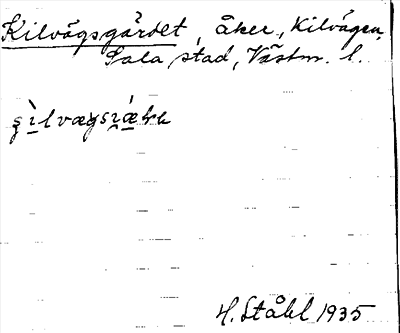 Kilvägsgärdet, åker, Kilvägen,
Sala stad, Västm. l.
H. Ståhl 1935